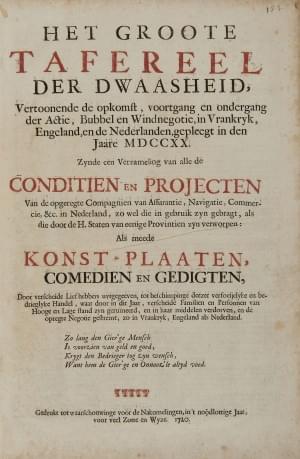 HET GROOTE
TAFEREEL
DER DWAASHEID,
Vertoonende de opkomst, voortgang en ondergang
der Actie, Bubbel en Windnegotie, in Vrankryk,
Engeland, en de Nederlanden, gepleegt in den
Jaare MDCCXX.
Zynde een Verzameling van alle de
CONDITIEN EN PROJECTEN
Van de opgeregte Compagnien van Assurantie, Navigatie, Commer-
cie, &c. in Nederland, zo wel die in gebruik zyn gebragt, als
die door de H. Staten van eenige Provintien zyn verworpen:
Als meede
KONST-PLAATEN,
COMEDIEN EN GEDIGTEN,
Door verscheide Liefhebbers uytgegeeven, tot beschimpinge deezer verfoeijelyke en be-
drieglyke Handel, waar door in dit Jaar, verscheide Familien en Persoonen van
Hooge en Lage stand zyn geruineerd, en in haar middelen verdorven, en de
opregte Negotie gestremt, zo in Vrankryk, Engeland als Nederland.
Zo lang den Gier'ge Mensch
Is voorzien van geld en goed,
Krygt den Bedrieger tog zyn wensch,
Want hem de Gier'ge en Onnoz'le altyd voed.
Gedrukt tot waarschouwinge voor de Nakomelingen, in't noodlottige Jaar,
voor veel Zotte en Wyze. 1720.